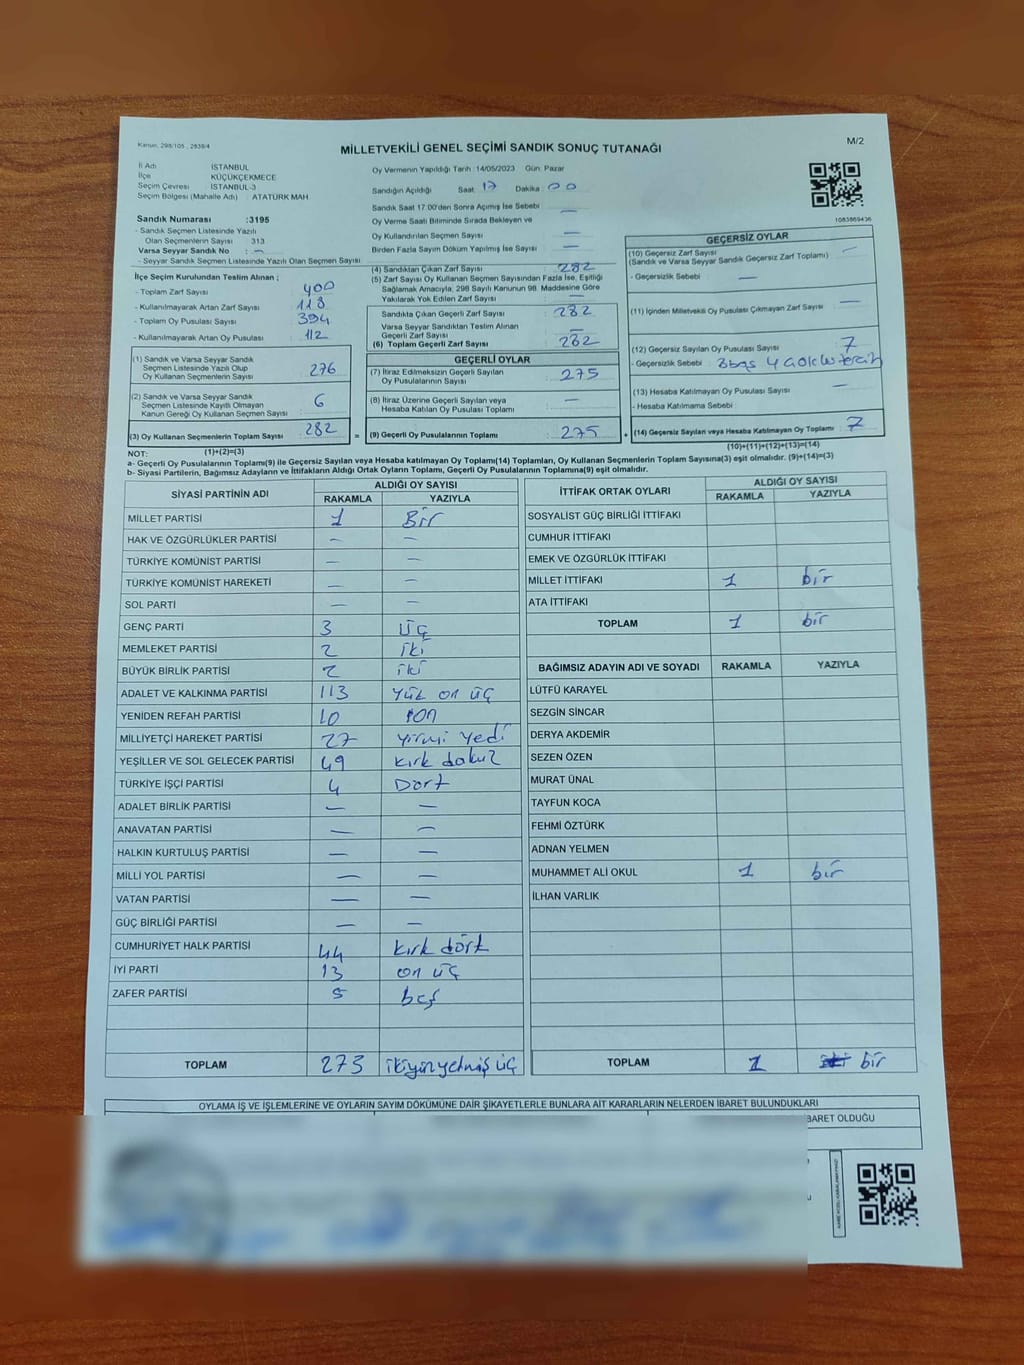 Kanun, 298/105 , 2839/4
MİLLETVEKİLİ GENEL SEÇİMİ SANDIK SONUÇ TUTANAĞI
M/2
İl Adı : İSTANBUL
İlçe : KÜÇÜKÇEKMECE
Seçim Çevresi : İSTANBUL-3
Seçim Bölgesi (Mahalle Adı) : ATATÜRK MAH
Sandık Numarası : 3195
- Sandık Seçmen Listesinde Yazılı
Olan Seçmenlerin Sayısı : 313
Varsa Seyyar Sandık No : —
- Seyyar Sandık Seçmen Listesinde Yazılı Olan Seçmen Sayısı
Oy Vermenin Yapıldığı Tarih :14/05/2023 Gün: Pazar
Sandığın Açıldığı Saat: 17 Dakika : 00
Sandık Saat 17.00'den Sonra Açılmış İse Sebebi : —
Oy Verme Saati Bitiminde Sırada Bekleyen ve
Oy Kullandırılan Seçmen Sayısı —
Birden Fazla Sayım Döküm Yapılmış İse Sayısı : —
1083869436
İlçe Seçim Kurulundan Teslim Alınan ;
- Toplam Zarf Sayısı : 400
- Kullanılmayarak Artan Zarf Sayısı : 118
- Toplam Oy Pusulası Sayısı : 394
- Kullanılmayarak Artan Oy Pusulası : 112
(1) Sandık ve Varsa Seyyar Sandık
Seçmen Listesinde Yazılı Olup
Oy Kullanan Seçmenlerin Sayısı : 276
(2) Sandık ve Varsa Seyyar Sandık
Seçmen Listesinde Kayıtlı Olmayan
Kanun Gereği Oy Kullanan Seçmen Sayısı : 6
(3) Oy Kullanan Seçmenlerin Toplam Sayısı : 282
(4) Sandıktan Çıkan Zarf Sayısı : 282
(5) Zarf Sayısı Oy Kullanan Seçmen Sayısından Fazla İse, Eşitliği
Sağlamak Amacıyla, 298 Sayılı Kanunun 98. Maddesine Göre
Yakılarak Yok Edilen Zarf Sayısı : —
Sandıkta Çıkan Geçerli Zarf Sayısı : 282
Varsa Seyyar Sandıktan Teslim Alınan
Geçerli Zarf Sayısı : —
(6) Toplam Geçerli Zarf Sayısı : 282
GEÇERLİ OYLAR
(7) İtiraz Edilmeksizin Geçerli Sayılan
Oy Pusulalarının Sayısı : 275
(8) İtiraz Üzerine Geçerli Sayılan veya
Hesaba Katılan Oy Pusulası Toplamı : —
= (9) Geçerli Oy Pusulalarının Toplamı : 275
GEÇERSİZ OYLAR
(10) Geçersiz Zarf Sayısı : —
(Sandık ve Varsa Seyyar Sandık Geçersiz Zarf Toplamı)
- Geçersizlik Sebebi : —
(11) İçinden Milletvekili Oy Pusulası Çıkmayan Zarf Sayısı : —
(12) Geçersiz Sayılan Oy Pusulası Sayısı : 7
- Geçersizlik Sebebi : 3 boş 4 tercih
(13) Hesaba Katılmayan Oy Pusulası Sayısı : —
- Hesaba Katılmama Sebebi :
+ (14) Geçersiz Sayılan veya Hesaba Katılmayan Oy Toplamı : 7
(1)+(2)=(3)
(10)+(11)+(12)+(13)=(14)
NOT:
a- Geçerli Oy Pusulalarının Toplamı(9) ile Geçersiz Sayılan veya Hesaba katılmayan Oy Toplamı(14) Toplamları, Oy Kullanan Seçmenlerin Toplam Sayısına(3) eşit olmalıdır. (9)+(14)=(3)
b- Siyasi Partilerin, Bağımsız Adayların ve İttifakların Aldığı Ortak Oyların Toplamı, Geçerli Oy Pusulalarının Toplamına(9) eşit olmalıdır.
SİYASİ PARTİNİN ADI ALDIĞI OY SAYISI
RAKAMLA YAZIYLA
MİLLET PARTİSİ 1 Bir
HAK VE ÖZGÜRLÜKLER PARTİSİ — —
TÜRKİYE KOMÜNİST PARTİSİ — —
TÜRKİYE KOMÜNİST HAREKETİ — —
SOL PARTİ — —
GENÇ PARTİ 3 üç
MEMLEKET PARTİSİ 2 iki
BÜYÜK BİRLİK PARTİSİ 2 iki
ADALET VE KALKINMA PARTİSİ 113 yüz on üç
YENİDEN REFAH PARTİSİ 10 on
MİLLİYETÇİ HAREKET PARTİSİ 27 yirmi yedi
YEŞİLLER VE SOL GELECEK PARTİSİ 49 kırk dokuz
TÜRKİYE İŞÇİ PARTİSİ 4 Dört
ADALET BİRLİK PARTİSİ — —
ANAVATAN PARTİSİ — —
HALKIN KURTULUŞ PARTİSİ — —
MİLLİ YOL PARTİSİ — —
VATAN PARTİSİ — —
GÜÇ BİRLİĞİ PARTİSİ — —
CUMHURİYET HALK PARTİSİ 44 kırk dört
İYİ PARTİ 13 on üç
ZAFER PARTİSİ 5 beş
TOPLAM 273 ikiyüzyetmiş üç
İTTİFAK ORTAK OYLARI ALDIĞI OY SAYISI
RAKAMLA YAZIYLA
SOSYALİST GÜÇ BİRLİĞİ İTTİFAKI
CUMHUR İTTİFAKI
EMEK VE ÖZGÜRLÜK İTTİFAKI
MİLLET İTTİFAKI 1 bir
ATA İTTİFAKI
TOPLAM 1 bir
BAĞIMSIZ ADAYIN ADI VE SOYADI RAKAMLA YAZIYLA
LÜTFÜ KARAYEL
SEZGİN SİNCAR
DERYA AKDEMİR
SEZEN ÖZEN
MURAT ÜNAL
TAYFUN KOCA
FEHMİ ÖZTÜRK
ADNAN YELMEN
MUHAMMET ALİ OKUL 1 bir
İLHAN VARLIK
TOPLAM 1 bir
OYLAMA İŞ VE İŞLEMLERİNE VE OYLARIN SAYIM DÖKÜMÜNE DAİR ŞİKAYETLERLE BUNLARA AİT KARARLARIN NELERDEN İBARET BULUNDUKLARI
BARET OLDUĞU